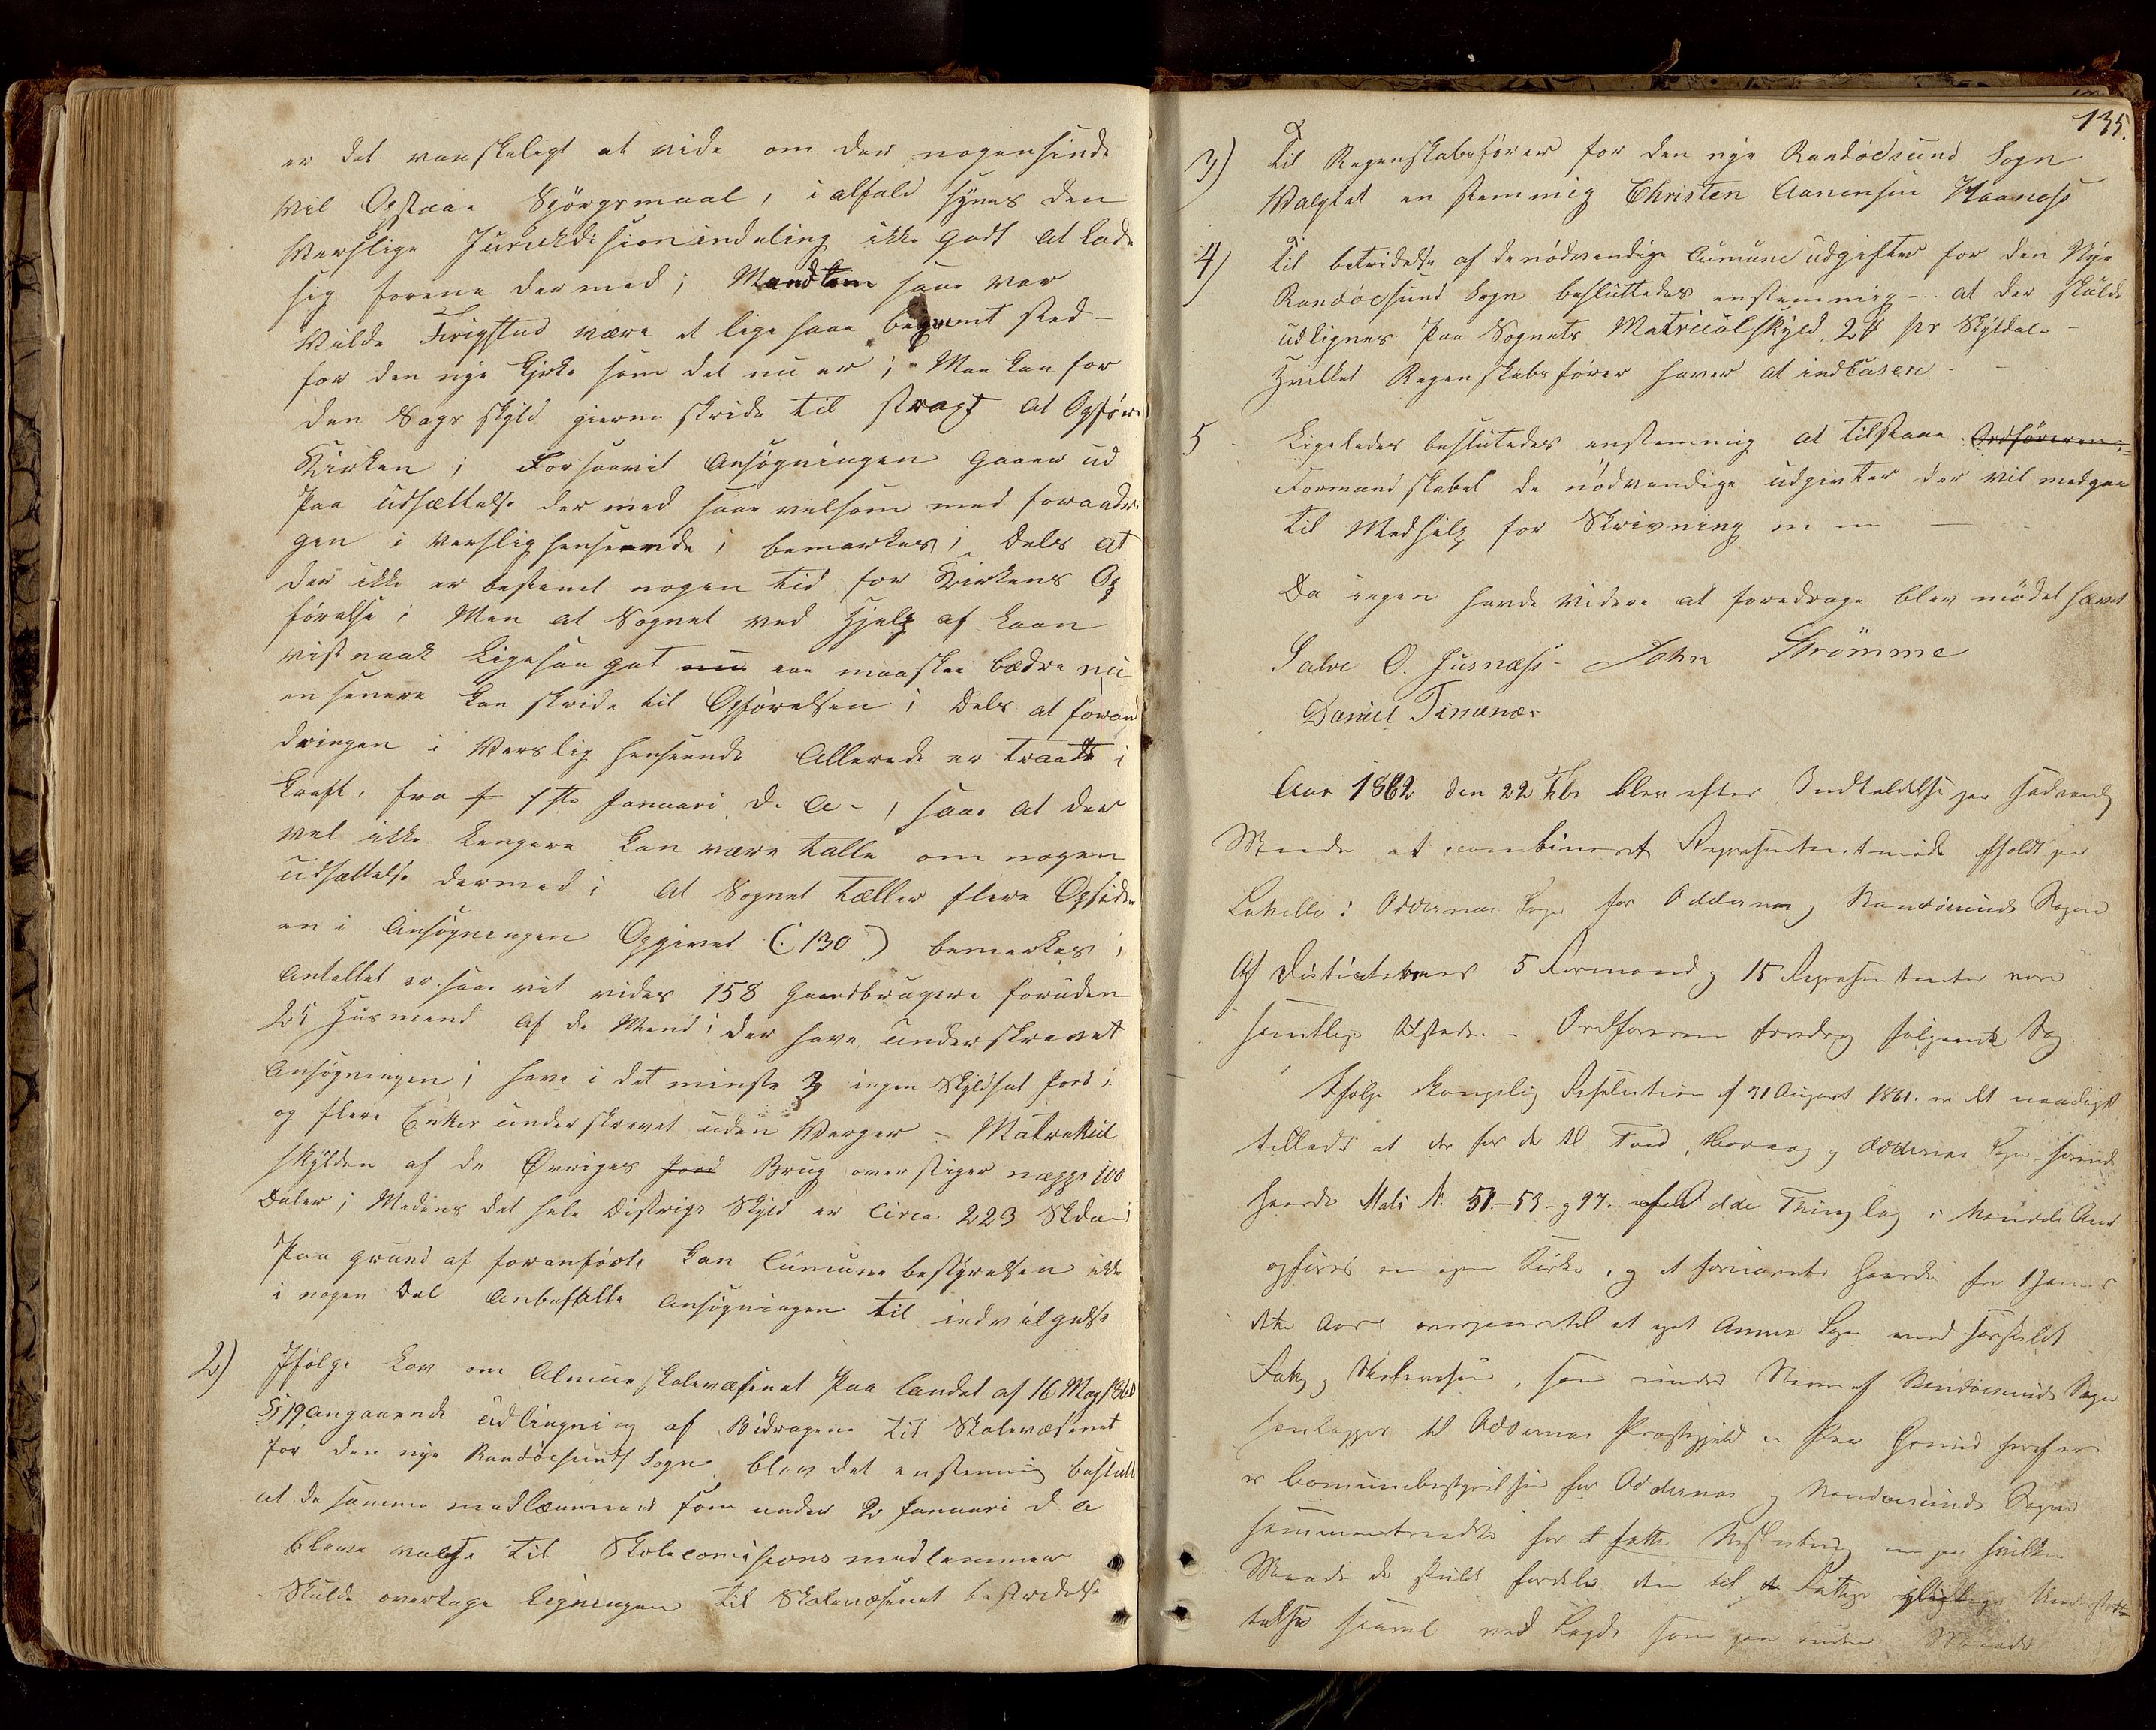 er det vanskeligt at vide om der nogensinde
vil Opstaae Spörgsmaal, i alfald synes den
Verslige Jurickdisionindeling ikke godt at lade
sig forene dermed; Mandtom saae var
Vilde Frigstad være et lige saae beqvemt sted -
for den nye Kjrke som det nu er; Man kan for
den Sags skyld gierne skride til stragt at Opføre
Kirken; Forsaavit Ansøgningen gaaer ud
Paa udsættelse der med saae velsom med foraadri
gen i verslighenseende; bemærkes; Dels at
der ikke er bestemt nogen tid for Kirkens Op
førelse; Men at Sognet ved Hjelp af Laan
vist naak Ligesaa got nu en maaskee bædre nu
en senere kan skride til Opførelsen; Dels at foran
dringen i Verslig henseende Allerede er traadt i
kraft, fra 1ste Januari d. A., saae at der
vel ikke Lengere kan være talle om nogen
udsættelse dermed; At Sognet tæller flere Opsidere
en i Ansøgningen Opgivet (: 130 :) bemerkes;
Antallet er saae vit vides 158 Gaardbrugere foruden
25 Husmend Af de Mend; der have underskrevet
Ansøgningen; have i det minste 3 ingen Skyldsat Jord;
og flere Enker under skrevet uden Verger - Matrekul
skylden af de Øvriges Jord Brug overstiger neppe 100
Daler; Medens det hele Distrigs Skyld er Circa 223 Skdaler
Paa grund af foranførte kan Cumune bestyrelsen ikke
i nogen Del Anbefalle Ansøgningen til indvilgelse
2) Ifølge Lov om Almueskolevæsenet Paa Landet af 16 May 1860
§ 19 angaaende Udlingning af Bidragene til Skolevæsenet
for den nye Randöesunds Sogn blev det enstemmig beslutt
at de samme medlæmmer som under 2 Januari d A
bleve valgte til Skolecomisions medlemmer
Skulde overtage Ligningen til Skolevæsenet bestridelse
135.
3) Til Regenskabsfører for den nye Randöesund Sogn
Valgtes en stemmig Christen Aanensen Haaness
4) Til bestridelse af de nödvendige Cumune udgifter for den Nye
Randöesund Sogn besluttedes enstemmig - at der skulde
udlignes Paa Sognets Matriculskyld, 2 # pr Skyldaler -
Hvilket Regenskabsfører haver at indkasere -
5 - Ligeledes beslutedes enstemmig at tilstaae Ordföreren;
Formandskabet de nödvendige udgivter der vil medgaae
til Medhjelp for Skrivning m m -
Da ingen havde Videre at foredrage blev mödet hævet
Salve O. Jusnæss - John Strömme
Daniel Timenæs
Aar 1862 den 22 Feb. blev efter Indkaldelse paa sædvanlig
Maade et combineret Repræsentantmöde afholdt paa
i Oddernæs Sogn for Oddernæs og Randösunds Sogne
Af Districternes 5 Formænd og 15 Repræsentanter vare
samtlige tilstede. - Ordföreren foredrog følgende Sag.
Ifølge Kongelig Resolution af 31 August 1861. er det naadigst
tilladt at der for de til Tved, og Oddernæs Sogn hørende
Gaarde Matr N. 51.-53- og 97. af Odde Thinglag i
opføres en egen Kirke, og at fornævnte Gaarde fra 1 Januar
dette Aar overgaaer til et eget Annex Sogn med særskilt
Fattig og Skolevæsen, som under Navn af Randösunds Sogn
henlægges til Oddernæs Præstegjeld - Paa Grund heraf
er Comunebestyrelsen for Oddernæs og Randøesunds Sogne
sammentraadt for at fatte Beslutning om paa hvilken
Maade de skulde fordele den til de Fattige Understøt
telse saavel ved Lægd som paa anden Maade